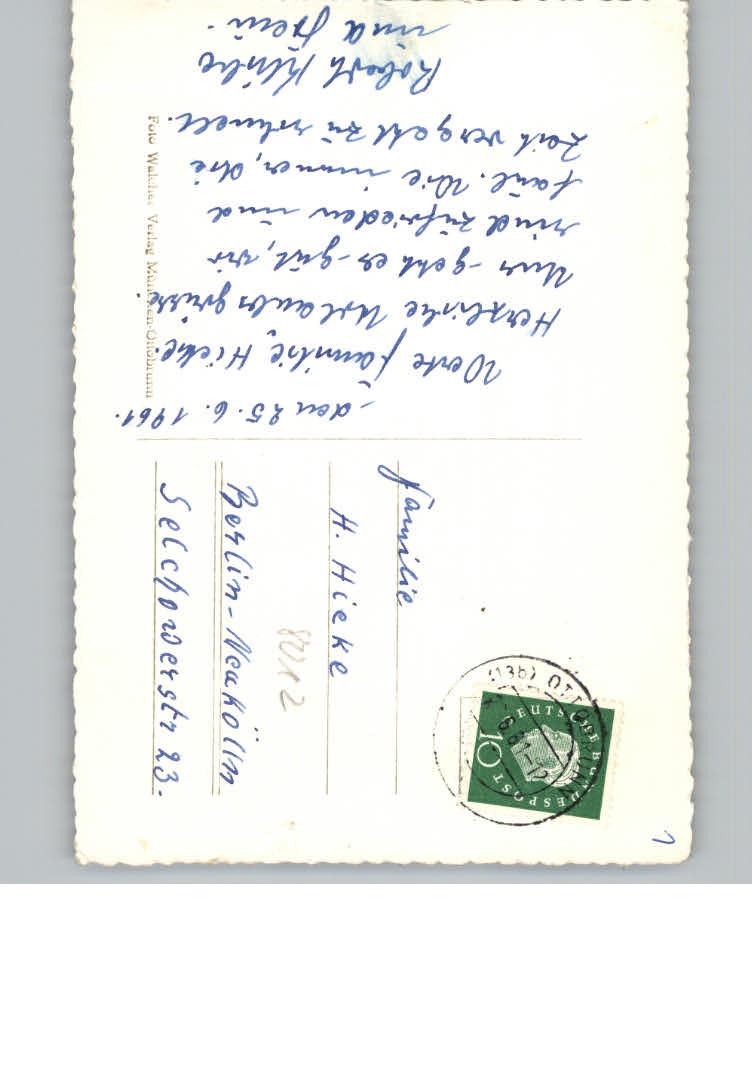 den 25.6.1961.
Werte Familie, Hieke.
Herzliche Urlaubsgrüsse
Uns - geht es - gut, wir
sind zufrieden und
faul. Wie immer, die
Zeit vergeht zu schnell.
Robert
und Frau.
Foto Walcher Verlag München-Ottobrunn
Familie
H. Hieke
Berlin-Neukölln
Selchowerstr 23.
8212
(13b) OTTOBRUNN
DEUTSCHE BUNDESPOST
10
1